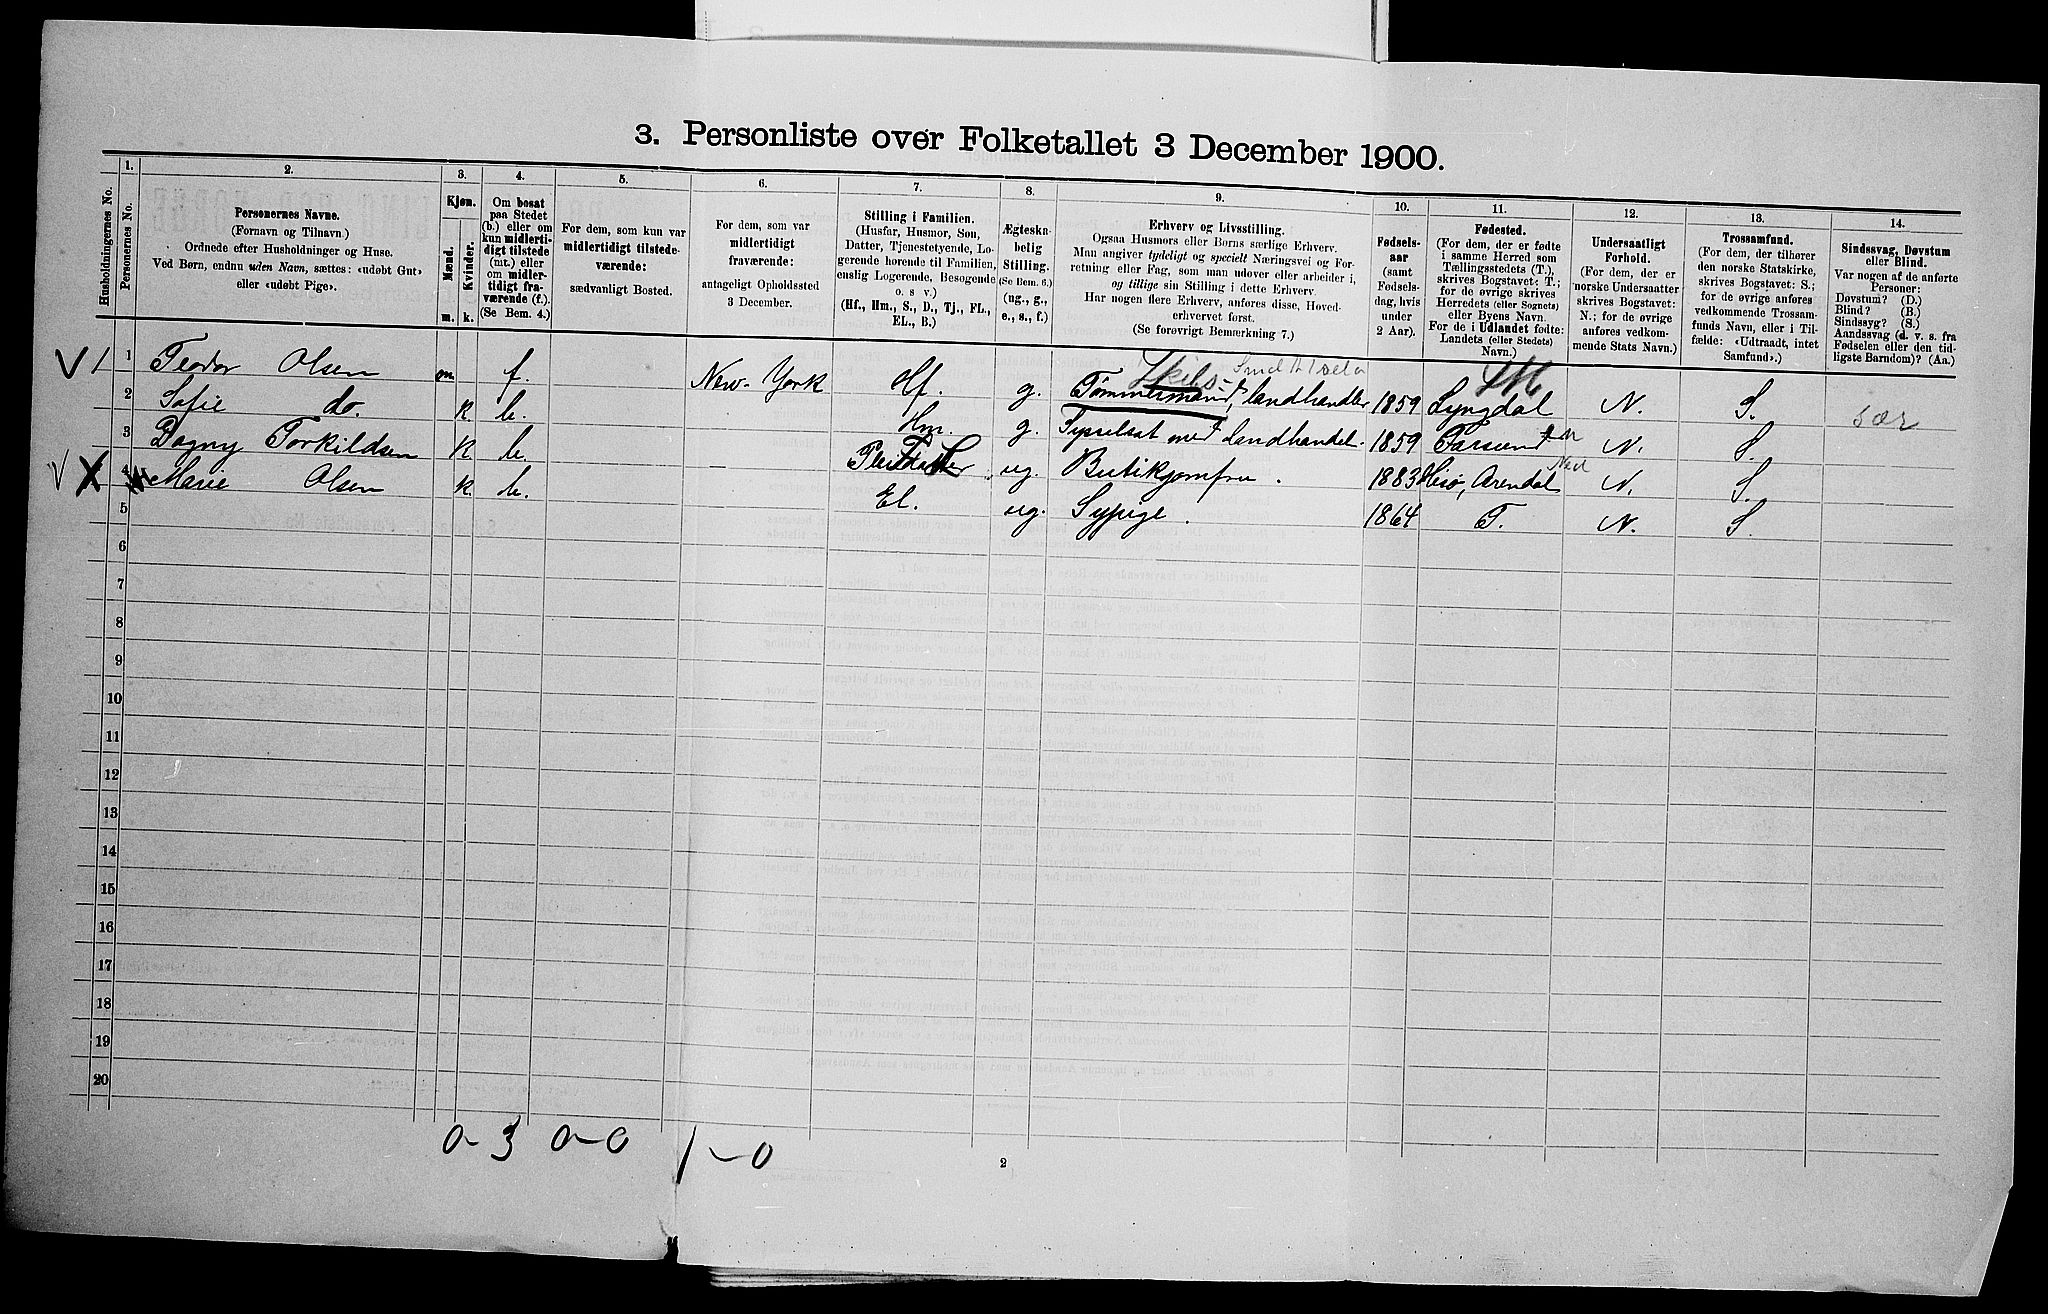 3. Personliste over Folketallet 3 December 1900.
Husholdningernes No.
1.
Personernes No.
2.
Personernes Navne.
(Fornavn og Tilnavn.)
Ordnede efter Husholdninger og Huse.
Ved Børn, endnu uden Navn, sættes: «udøbt Gut»
eller «udøbt Pige».
3.
Kjøn.
Mænd.
Kvinder.
m.
k.
4.
Om bosat
paa Stedet
(b.) eller om
kun midlerti-
digt tilstede
(mt.) eller
om midler-
tidigt fra-
værende (f.).
(Se Bem. 4.)
5.
For dem, som kun var
midlertidigt tilstede-
værende:
sædvanligt Bosted.
6.
For dem, som var
midlertidigt
fraværende:
antageligt Opholdssted
3 December.
7.
Stilling i Familien.
(Husfar, Husmor, Søn,
Datter, Tjenestetyende, Lo-
gerende hørende til Familien,
enslig Logerende, Besøgende
o. s. v.)
(Hf., Hm., S., D., Tj., FL.,
EL., B.)
8.
Ægteska-
belig
Stilling.
(Se Bem. 6.)
(ug., g.,
e., s., f.)
9.
Erhverv og Livsstilling.
Ogsaa Husmors eller Børns særlige Erhverv.
Man angiver tydeligt og specielt Næringsvei og For-
retning eller Fag, som man udøver eller arbeider i,
og tillige sin Stilling i dette Erhverv.
Har nogen flere Erhverv, anføres disse, Hoved-
erhvervet først.
(Se forøvrigt Bemærkning 7.)
10.
Fødsels-
aar
(samt
Fødsels-
dag, hvis
under
2 Aar).
11.
Fødested.
(For dem, der er fødte
i samme Herred som
Tællingsstedets (T.),
skrives Bogstavet: T.;
for de øvrige skrives
Herredets (eller Sognets)
eller Byens Navn.
For de i Udlandet fødte:
Landets (eller Stedets)
Navn.)
12.
Undersaatligt
Forhold.
(For dem, der er
norske Undersaatter
skrives Bogstavet:
N.; for de øvrige
anføres vedkom-
mende Stats Navn.)
13.
Trossamfund.
(For dem, der tilhører
den norske Statskirke,
skrives Bogstavet: S.;
for de øvrige anføres
vedkommende Trossam-
funds Navn, eller i Til-
fælde: «Udtraadt, intet
Samfund».)
14.
Sindssvag, Døvstum
eller Blind.
Var nogen af de anførte
Personer:
Døvstum? (D.)
Blind? (B.)
Sindssyg? (S.)
Aandssvag (d. v. s. fra
Fødselen eller den tid-
ligste Barndom)? (Aa.)
1 1 Teodor Olsen m f. New-York Hf. g. Tømmermand, landhandler 1859 Lyngdal N. S.
2 Sofie do. k b. Hm. g. Sysselsat med landhandel. 1859 Farsund N. S. sær
3 Dagny Torkildsen k b. - Pleiedatter ug. Butikjomfru. 1883 Hisø, Arendal N. S.
4 Marie Olsen k. b. El. ug. Sypige. 1864 T. N. S.
5
6
7
8
9
10
11
12
13
14
15
16
17
18
19
20
0-3 0-0 1-0
2